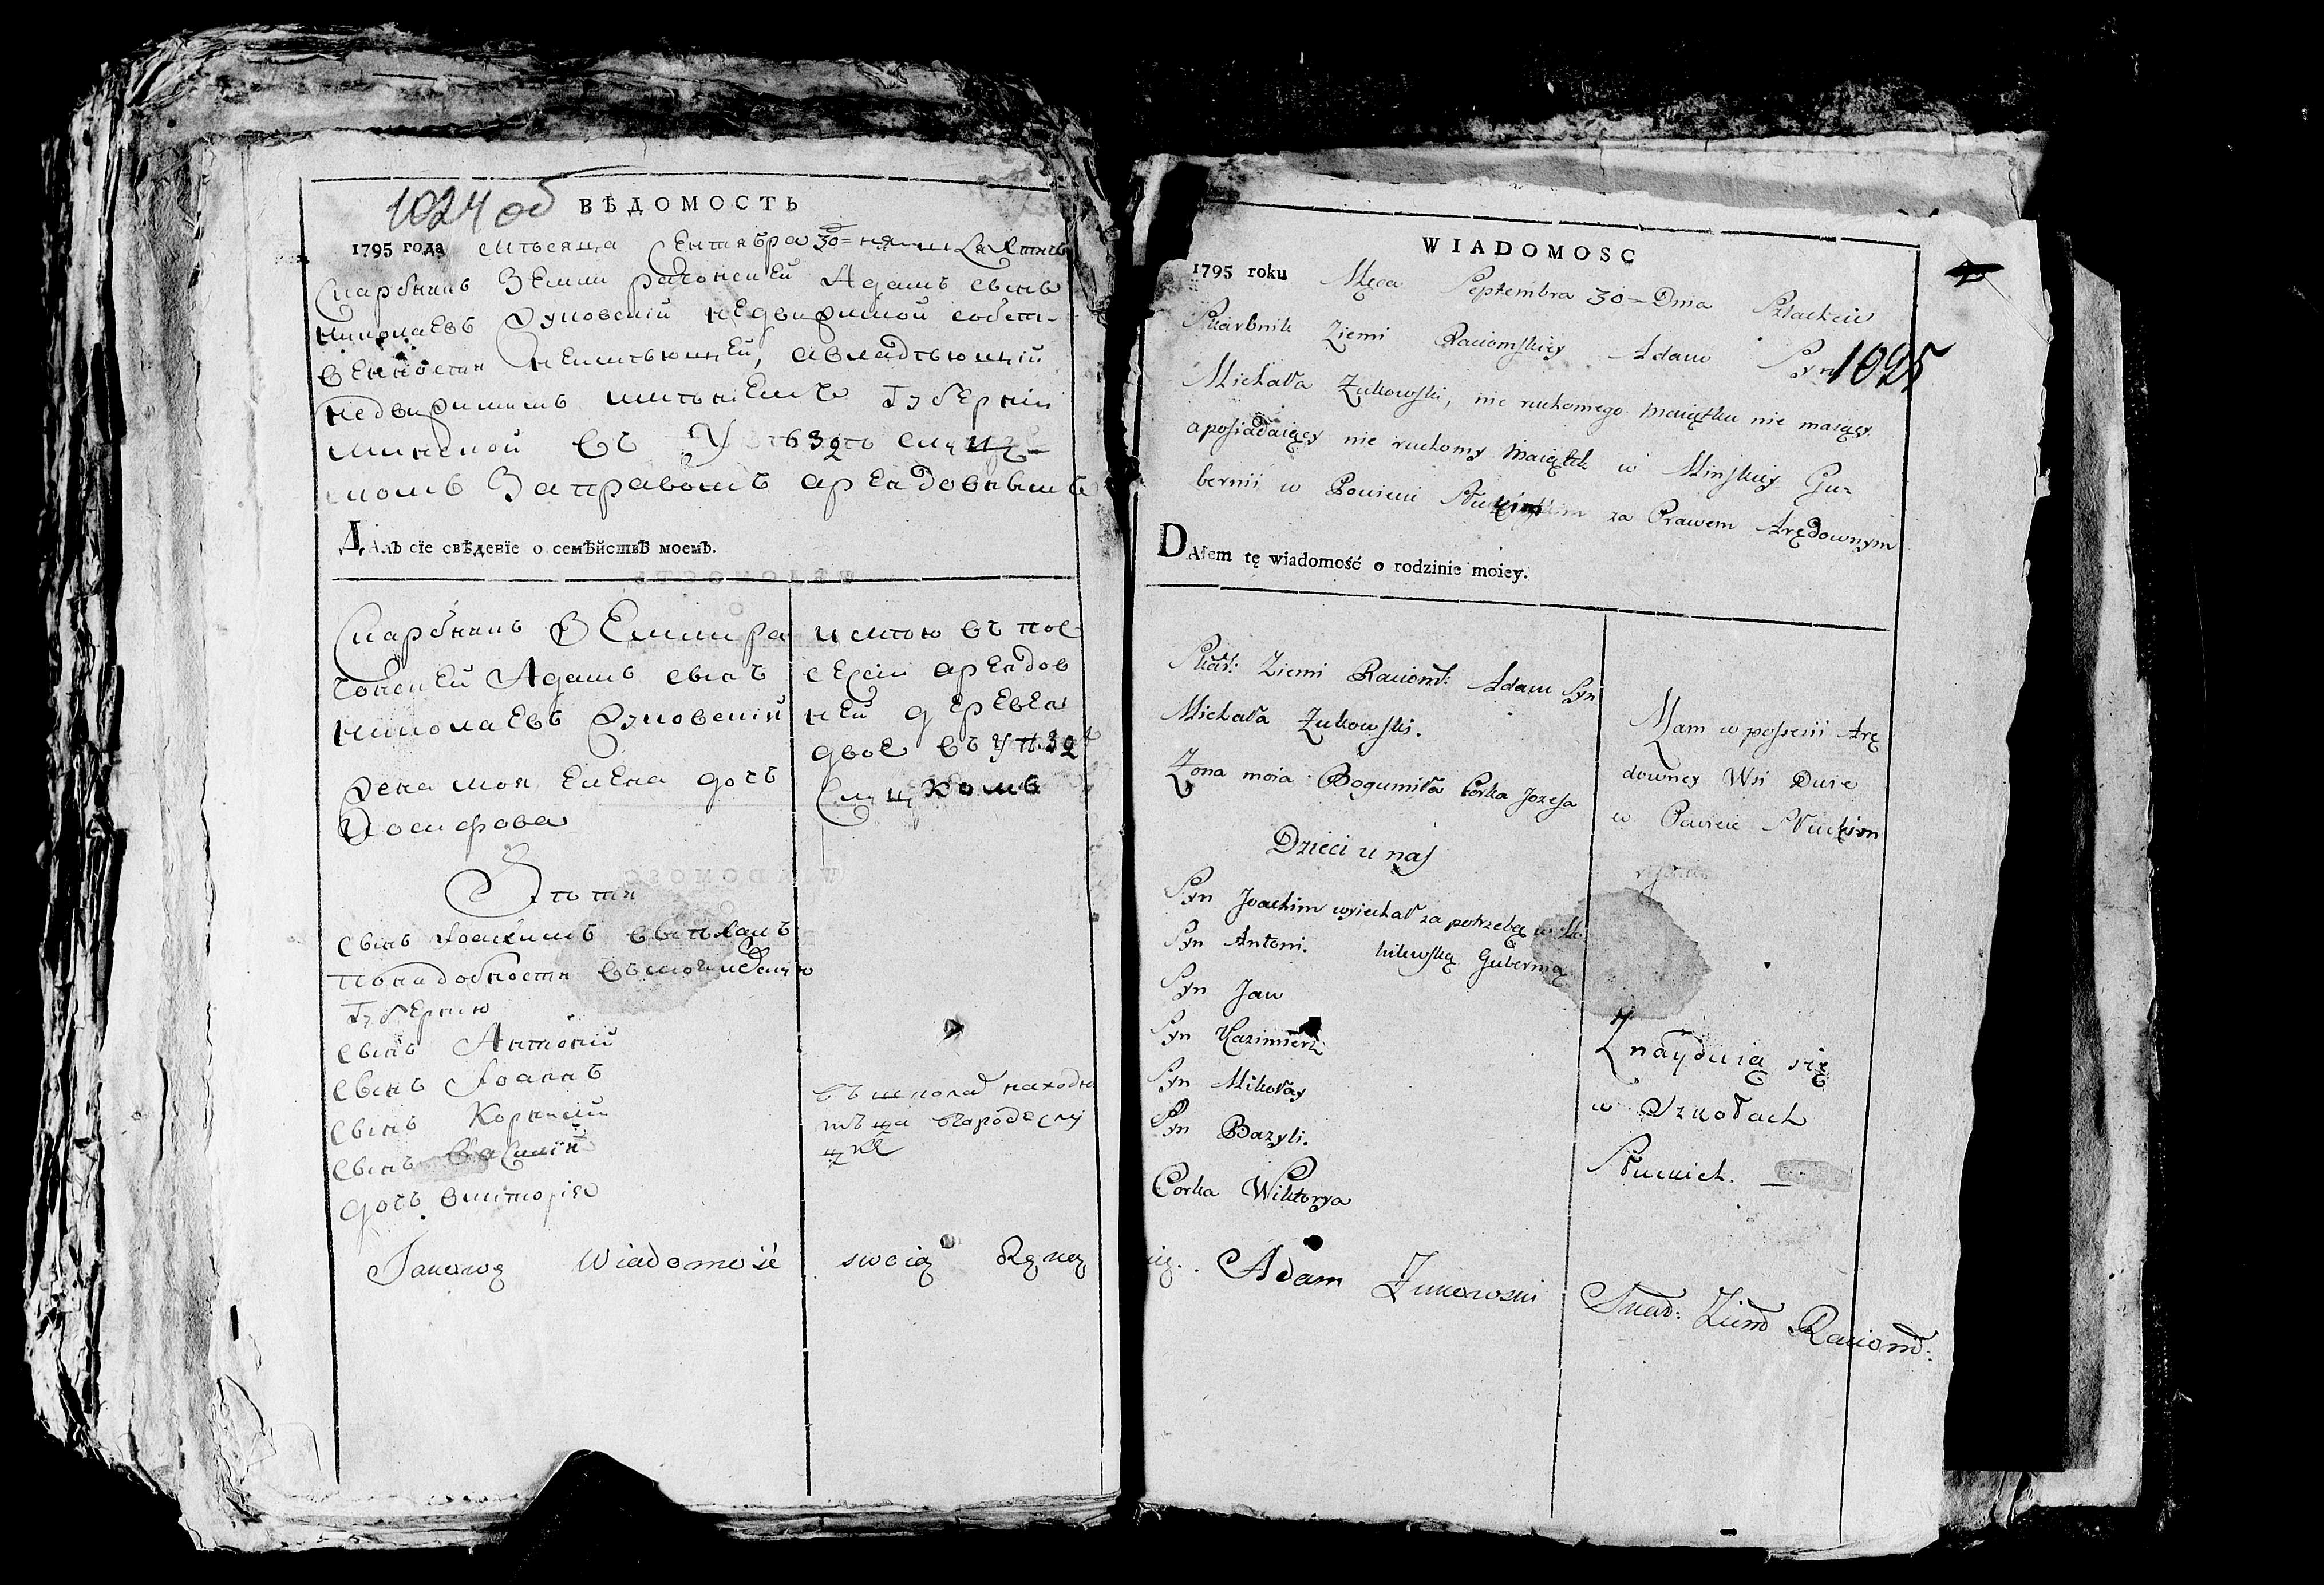 1024 об
ВѢДОМОСТЬ
1795 года мѣсяца Сентября 30=
Скарбникъ Земли Рачонской Адамъ сынъ
Николаевъ Жуковский недвижимой собст-
венности неимѣющей, авладѣющий
недвижимимъ имѣнемъ Губернии
минской въ Уѣздѣ слуц-
комъ Заправомъ арендовнымъ
Далъ сїе свѣденїе о семѣйствѣ моемъ.
Скарбникъ Земли Ра
чонской Адамъ сынъ
Николаевъ Жуковский
жена моя Елена дочь
Иосифова
Дѣти
сынъ Иоакимъ выехалъ
понадобности вмогилевскую
Губернию
сынъ Антоний
сынъ Иоаннъ
сынъ
сынъ Василий
дочь Виктория
имѣю въ пос
сесии арендов
ней деревен
двое въ уѣзд
Слуцкомъ
въ школах находя
тъца вгороде слу
цке
Takową Wiadomość swoią Ręką
WIADOMOSC
1795 roku Męca Septembra 30= Dnia Szlachcic
Skarbnik Ziemi Raciomskiey Adam Syn
1025
Michała Żukowski, nie ruchomego Maiątku nie maiący
a posiadaiący nie ruchomy Maiątek w Minskiey Gu-
bernii w Powieci Słuckim za Prawem Arędownym
DAłem tę wiadomość o rodzinie moiey.
Skar: Ziemi Raciom: Adam Syn
Michała Żukowski.
Żona moia Bogumiła Corka Jozefa
Dzieci u nas
Syn Joachim wyiechał za potrzebą w Mo
Syn Antoni. hilewską Gubernią
Syn Jan
Syn Kazimierz
Syn Mikołay
Syn Bazyli.
Corka Wiktorya
Mam w possesii Arę
downey Wsi Dwie
w Powiecie Słuckim
Znayduią się
w Szkołach
Słuckich.
Adam Żukowski Skar: Ziem Raciom: